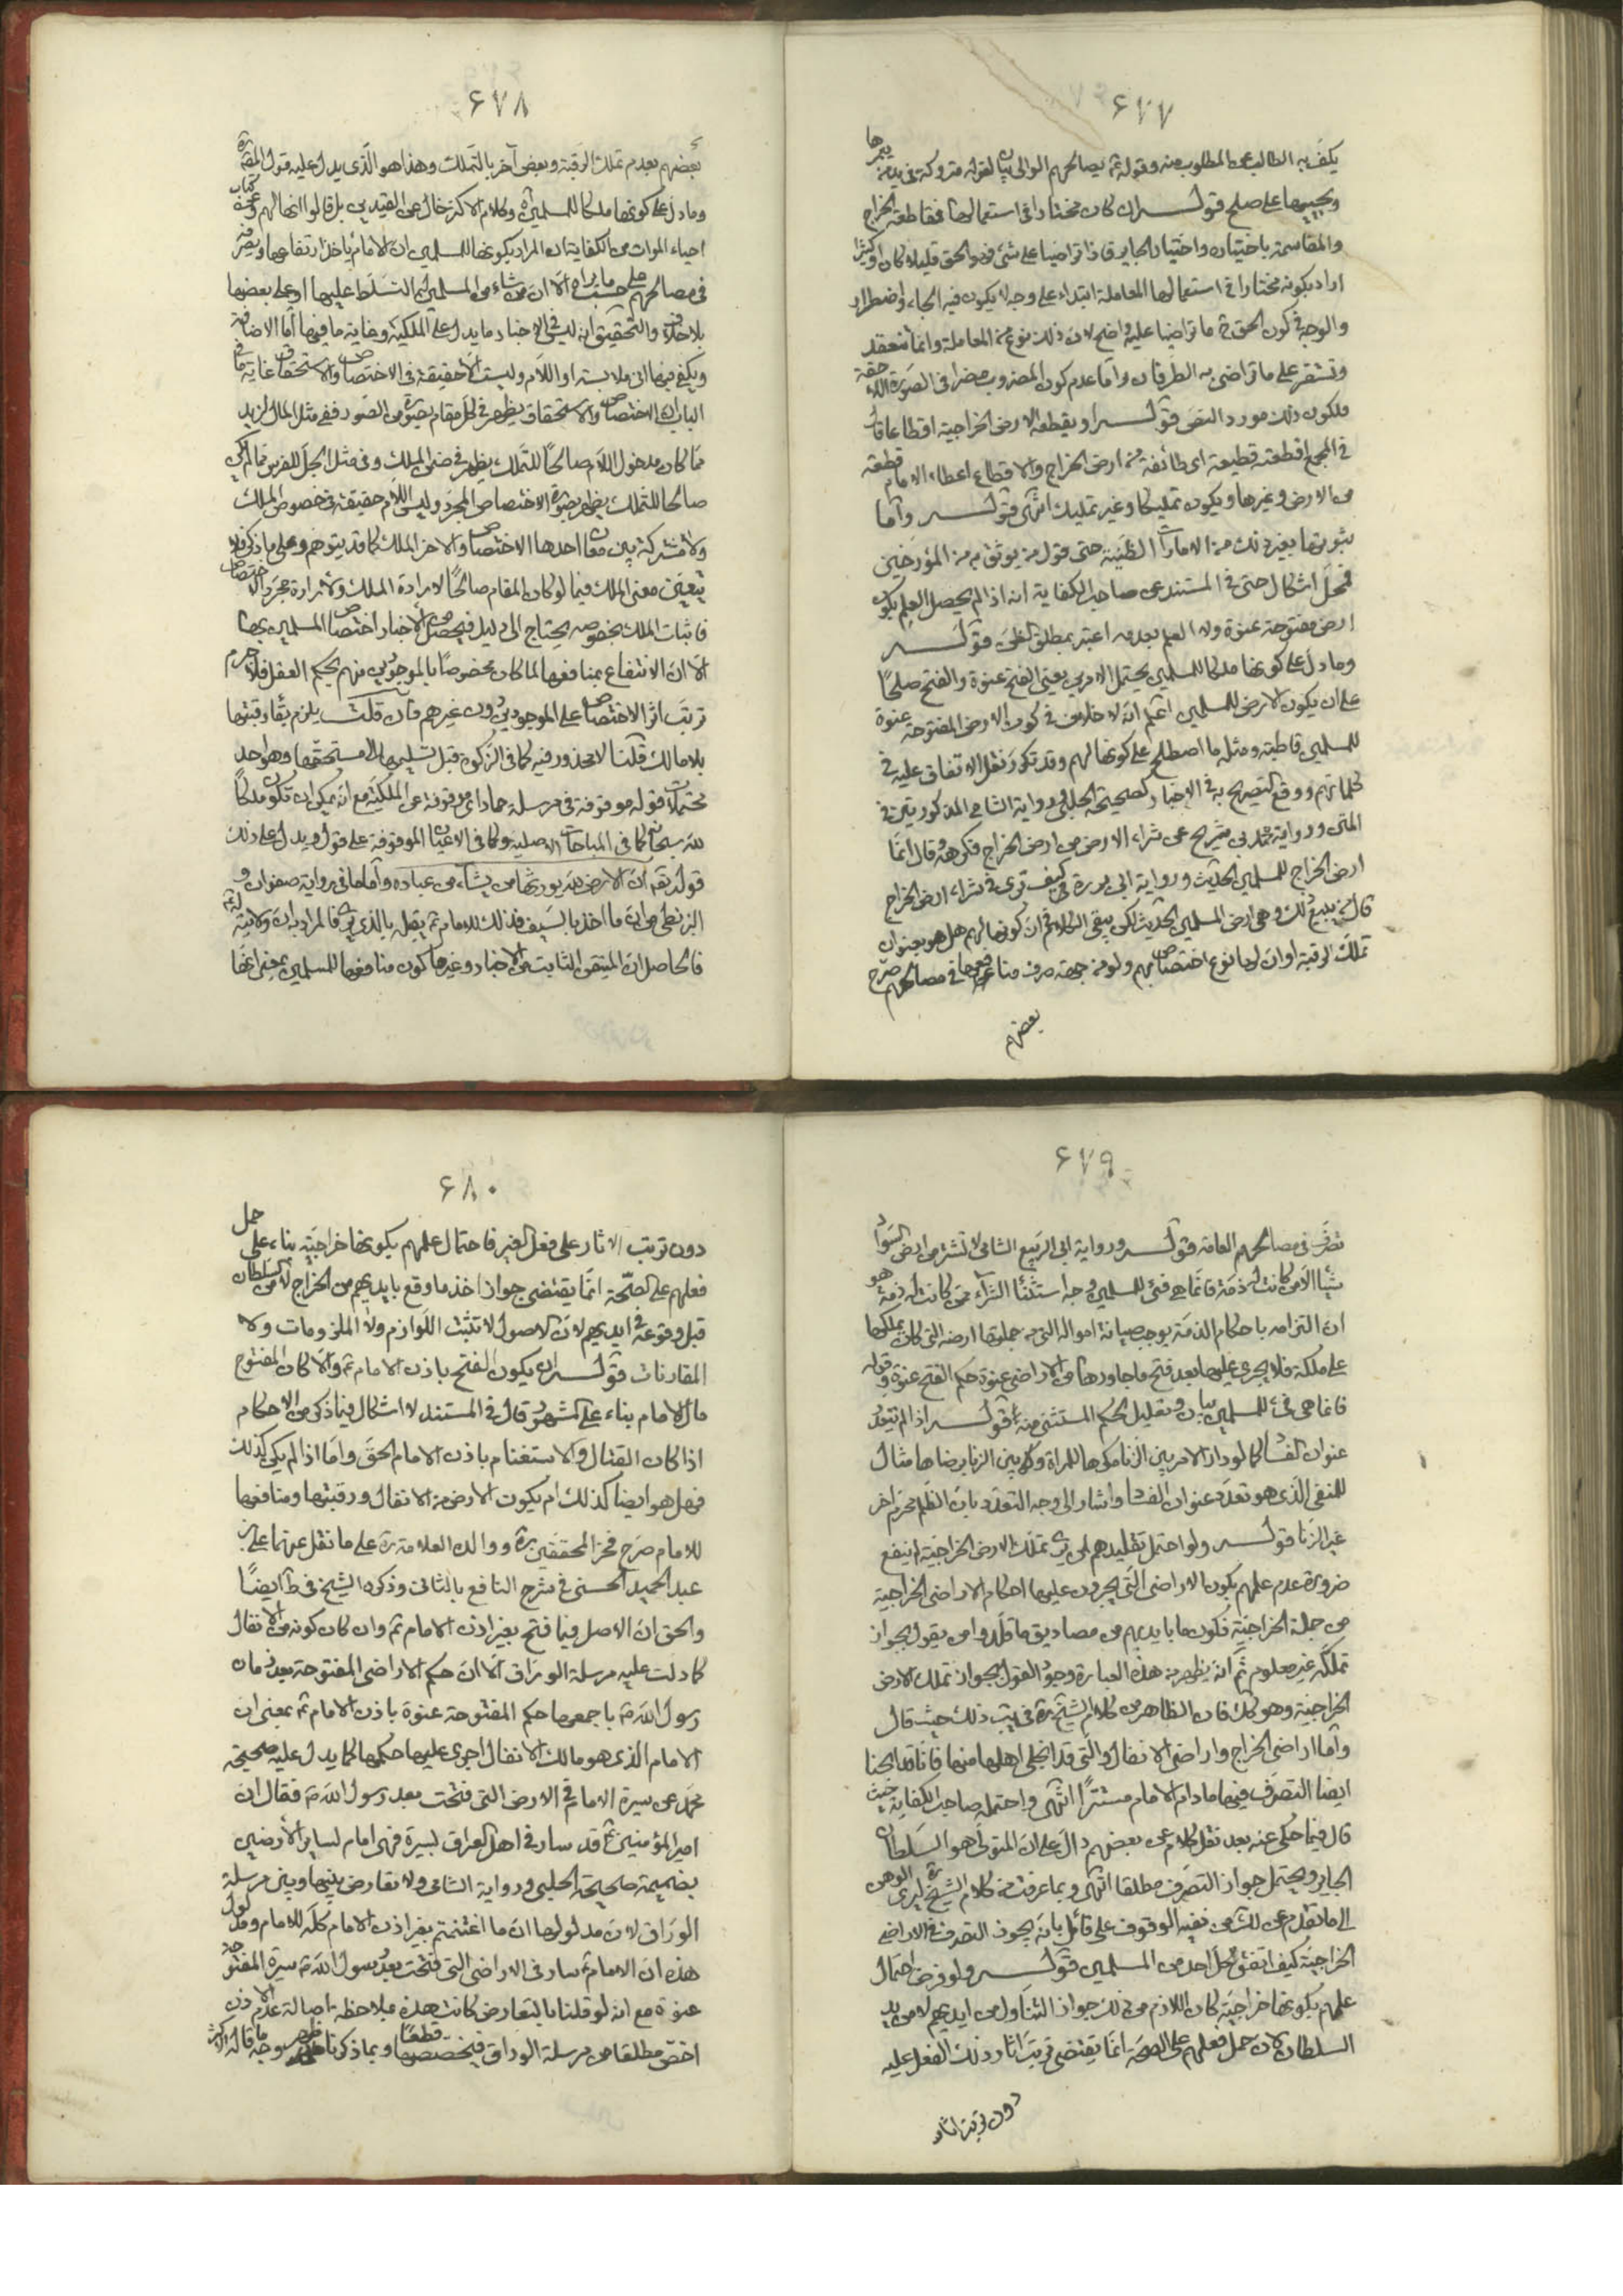 ۶۷۷
يكفّ به الطالب عن المطلوب منه وقوله ثم يصالحهم الوالى بيان لقوله متروكة فى يد من يعمرها
ويحييها على صلح قولـــه ان كان مختارا فى استعمالها فمقاطعة الخراج
والمقاسمة باختياره واختيار الجاير فاذا تراضيا على شئ فهو الحق قليلا كان او كثيرا
اراد بكونه مختارا فى استعمالها المعاملة ابتداء على وجه لا يكون فيه الجاء واضطرار
والوجه فى كون الحق ح ما تراضيا عليه واضح لان ذلك نوع من المعاملة وانما تنعقد
وتستقر على ما تراضى به الطرفان واما عدم كون المضروب مضرا فى الصورة اللاحقة
فلكون ذلك مورد النص قولـــه او يقطعه الارض الخراجية اقطاعا قال
فى المجمع اقطعته قطيعة اى طائفة من ارض الخراج والاقطاع اعطاء الامام قطعة
من الارض وغيرها ويكون تمليكا وغير تمليك انتهى قولـــه واما
ثبوتها بغير ذلك من الامارات الظنية حتى قول من يوثق به من المؤرخين
فمحل اشكال حتى فى المستند عن صاحب الكفاية انه اذا لم يحصل العلم بكون
ارض مفتوحة عنوة ولا العلم بعدمه اعتبر بمطلق الظن قولـــه
وما دل على كونها ملكا للمسلمين يحتمل الامرين يعنى الفتح عنوة والفتح صلحا
على ان يكون الارض للمسلمين اعلم انه لا خلاف فى كون الارض المفتوحة عنوة
للمسلمين قاطبة ومثله ما اصطلح على كونها لهم وقد تكرر نقل الاتفاق عليه فى
كلماتهم ووقع التصريح به فى الاخبار كصحيحة الحلبى ورواية الشامى المذكورتين فى
المتن ورواية محمد بن شريح عن شراء الارض من ارض الخراج فكرهه وقال انما
ارض الخراج للمسلمين الحديث ورواية ابى بردة كيف ترى فى شراء ارض الخراج
قال من يبيع ذلك وهى ارض المسلمين الحديث لكن يبقى الكلام فى ان كونها لهم هل هو بعنوان
تملك الرقبة او ان لها نوع اختصاص بهم ولو من جهة صرف منافعها فى مصالحهم صرح
بعضهم
۶۷۸
بعضهم بعدم تملك الرقبة وبعض آخر بالتملك وهذا هو الذى يدل عليه قول
وما دل على كونها ملكا للمسلمين وكلام الاكثر خال عن القيدين بل قالوا انها لهم وعن كتاب
احياء الموات من الكفاية ان المراد بكونها للمسلمين ان الامام ياخذ ارتفاعها ويصرفه
فى مصالحهم على حسب ما يراه لا ان من شاء من المسلمين له التسلط عليها او على بعضها
بلا خلاف والتحقيق انه ليس فى الاخبار ما يدل على الملكية وغاية ما فيها اما الاضافة
ويكفى فيها ادنى ملابسة او اللام وليست الا حقيقة فى الاختصاص والاستحقاق غاية ما فى
الباب ان الاختصاص والاستحقاق يظهر فى كل مقام بصورة من الصور ففى مثل المال لزيد
مما كان مدخول اللام صالحا للتملك يظهر فى ضمن الملك وفى مثل الجل للفرس مما لم يكن
صالحا للتملك يظهر بصورة الاختصاص المجرد وليس اللام حقيقة فى خصوص الملك
ولا مشتركة بين معان احدها الاختصاص والاخر الملك كما قد يتوهم وعلى ما ذكر فلا
يتعين معنى الملك فيما لو كان المقام صالحا لارادة الملك ولارادة مجرد الاختصاص
فاثبات الملك بخصوصه يحتاج الى دليل فيحصل من الاخبار اختصاص المسلمين بها
الا ان الانتفاع بمنافعها لما كان مخصوصا بالموجودين منهم بحكم العقل فلا جرم
ترتب اثر الاختصاص على الموجودين دون غيرهم فان قلت يلزم بقاء رقبتها
بلا مالك قلنا لا محذور فيه كما فى الزكوة قبل تسليمها الى مستحقها وهو احد
محتملات قوله موقوفة فى مرسلة حماد اى موقوفة عن الملكية مع انه يمكن ان تكون ملكا
لله سبحانه كما فى المباحات الاصلية وكما فى الاعيان الموقوفة على قول ويدل على ذلك
قوله تعالى ان الارض لله يورثها من يشاء من عباده واما ما فى رواية صفوان و
البزنطى من ان ما اخذ بالسيف فذلك للامام ثم يقبله بالذى يرى فالمراد به ان ولايته له
فالحاصل ان المتيقن الثابت من الاخبار وغيرها كون منافعها للمسلمين بمعنى انها
۶۷۹
تصرف فى مصالحهم العامة قولـــه ورواية ابى الربيع الشامى لا تشتر من ارض السواد
شيئا الا من كانت له ذمة فانما هى فئ للمسلمين وجه استثناء الشراء ممن كانت له ذمة هو
ان التزامه باحكام الذمة يوجب صيانة امواله التى من جملتها ارضه التى كان يملكها
على ملكه فلا يجرى عليها بعد فتح ما جاورها من الاراضى عنوة حكم الفتح عنوة وقوله
فانما هى فئ للمسلمين بيان وتعليل لحكم المستثنى منه قولـــه اذا لم يتعدد
عنوان الفساد كما لو دار الامر بين الزنا مكرها للمراة وبين الزنا برضاها مثال
للمنفى الذى هو تعدد عنوان الفساد واشار الى وجه التعدد بان الظلم محرم اخر
غير الزنا قولـــه ولو احتمل تقليدهم لمن يرى تملك الارض الخراجية لم ينفع
ضرورة عدم علمهم بكون الاراضى التى يجرون عليها احكام الاراضى الخراجية
من جملة الخراجية فكون ما بايديهم من مصاديق ما قلدوا من يقول بجواز
تملكه غير معلوم ثم انه يظهر من هذه العبارة وجود القول بجواز تملك الارض
الخراجية وهو كك فان الظاهر من كلام الشيخ ره فى يب ذلك حيث قال
واما اراضى الخراج واراضى الانفال والتى قد انجلى اهلها منها فانا قد ابحنا
ايضا التصرف فيها ما دام الامام مستترا انتهى واحتمله صاحب الكفاية حيث
قال فيما حكى عنه بعد نقل كلام عن بعضهم دال على ان المتولى هو السلطان
الجاير ويحتمل جواز التصرف مطلقا انتهى وبما عرفت من كلام الشيخ ره يسرى الوهن
الى ما تقدم عن لك من نفيه الوقوف على قائل بانه يجوز التصرف فى الاراضى
الخراجية كيف اتفق لكل احد من المسلمين قولـــه ولو فرض احتمال
علمهم بكونها خراجية كان اللازم من ذلك جواز التناول من ايديهم لا من يد
السلطان لان حمل فعلهم على الصحة انما يقتضى ترتيب اثار ذلك الفعل عليه
دون ترتيب اثار
۶۸۰
دون ترتيب الاثار على فعل الغير فاحتمال علمهم بكونها خراجية بناء على حمل
فعلهم على الصحة انما يقتضى جواز اخذ ما وقع بايديهم من الخراج لا من السلطان
قبل وقوعه فى ايديهم لان الاصول لا تثبت اللوازم ولا الملزومات ولا
المقارنات قولـــه ان يكون الفتح باذن الامام ع والا كان المفتوح
مال الامام بناء على المشهور قال فى المستند لا اشكال فيما ذكر من الاحكام
اذا كان القتال والاستغنام باذن الامام الحق واما اذا لم يكن كذلك
فهل هو ايضا كذلك ام يكون الارض من الانفال ورقبتها ومنافعها
للامام صرح فخر المحققين ره ووالده العلامة ره على ما نقل عنهما على بن
عبد الحميد الحسنى فى شرح النافع بالثانى وذكره الشيخ فى ط ايضا
والحق ان الاصل فيما فتح بغير اذن الامام ع وان كان كونه من الانفال
كما دلت عليه مرسلة الوراق الا ان حكم الاراضى المفتوحة بعد زمان
رسول الله ص باجمعها حكم المفتوحة عنوة باذن الامام ع بمعنى ان
الامام الذى هو مالك الانفال اجرى عليها حكمها كما يدل عليه صحيحة
محمد عن سيرة الامام فى الارض التى فتحت بعد رسول الله ص فقال ان
امير المؤمنين ع قد سار فى اهل العراق بسيرة فهى امام لساير الارضين
بضميمة صحيحة الحلبى ورواية الشامى ولا تعارض بينها وبين مرسلة
الوراق لان مدلولها ان ما اغتنمتم بغير اذن الامام كله للامام ومدلول
هذه ان الامام ع سار فى الاراضى التى فتحت بعد رسول الله ص سيرة المفتوحة
عنوة مع انه لو قلنا بالتعارض كانت هذه بملاحظة اصالة عدم الاذن
اخص مطلقا من مرسلة الوراق فيخصصها قطعا وبما ذكرنا ظهر وجه ما قاله الاكثر